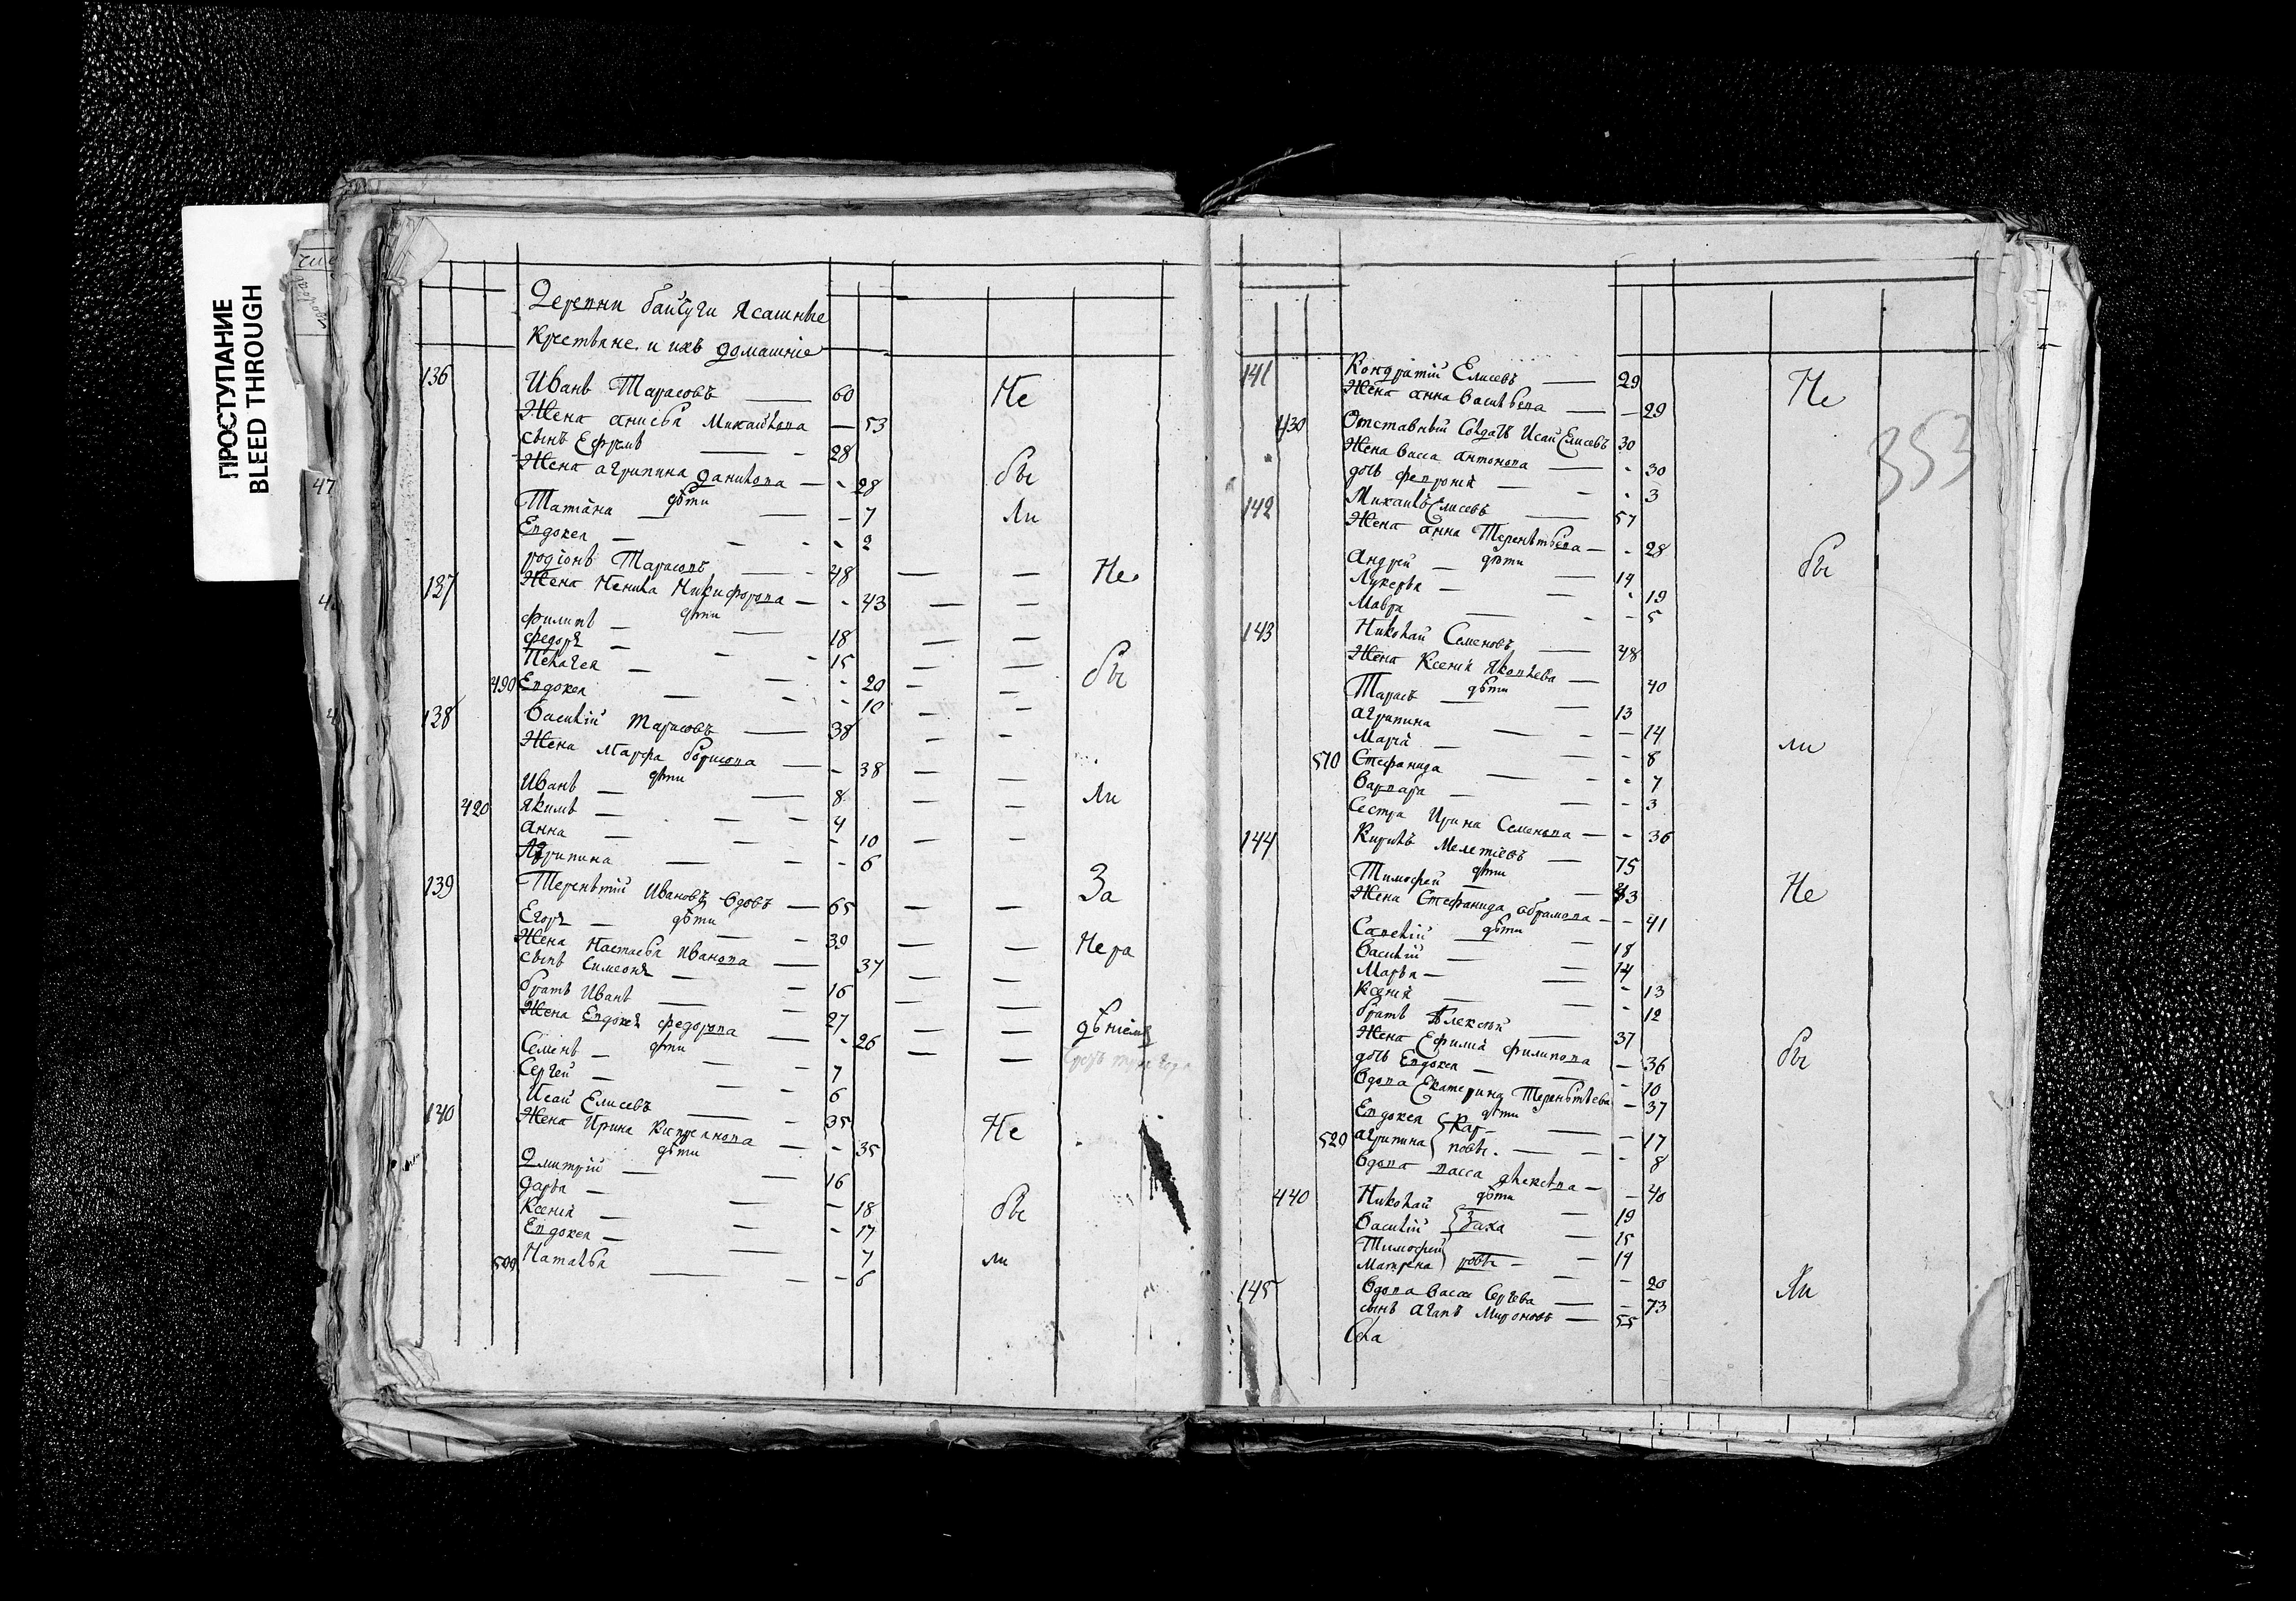 ПРОСТУПАНИЕ
BLEED THROUGH
Деревни Байсуги Ясашные
крестьяне и ихъ домашніе
136 Иванъ Тарасовъ — 60 Не
Жена Анисья Михайлова — 53
сынъ Ефремъ — 28
Жена Агрипина Данилова — 28 бы
дѣти
Татіана — 7 ли
Евдокея — 2
137 родіонъ Тарасовъ — 48 — — Не
Жена Ненила Никифорова — 43 — —
дѣти
Филипъ — 18
Федоръ — 15 — —
Пелагея — 20 — — бы
490 Евдокея — 10 — —
138 Василій Тарасовъ — 38 — —
Жена Марфа Борисова — 38 — —
дѣти
Иванъ — 8 — — ли
420 Якимъ — 4
Анна — 10 — —
Агрипина — 6
139 Терентій Ивановъ вдовъ — 65 — — За
дѣти
Егоръ — 39 — — Нера
Жена Настасья Иванова — 37 — —
сынъ Симеонъ — 16 — —
братъ Иванъ — 27 — — дѣніемъ
Жена Евдокея Федорова — 26 — —
дѣти
Семенъ — 7
Сергей — 6
140 Исай Елисевъ — 35 Не
Жена Ирина Киприянова — 35
дѣти
Дмитрій — 16
Дарья — 18 бы
Ксенія — 17
Евдокея — 7 ли
500 Наталья — 6
353
141 Кондратій Елисевъ — 29 Не
Жена Анна Васильева — 29
430 Отставный Солдатъ Исай Елисевъ 30
Жена Васса Антонова — 30
дочь Февронія — 3
142 Михаилъ Елисевъ — 57
Жена Анна Терентьева — 28 бы
дѣти
Андрей — 14
Лукерья — 19
Мавра — 5
143 Николай Семеновъ — 48
Жена Ксенія Яковлева — 40
дѣти
Тарасъ — 13
Агрипина — 14
Марія — 8 ли
510 Стефанида — 7
Варвара — 3
Сестра Ирина Семенова — 36
144 Кирилъ Мелетіевъ — 75
дѣти
Тимофей — 43 Не
Жена Стефанида Абрамова — 41
дѣти
Савелій — 18
Василій — 14
Марья — 13
Ксенія — 12
братъ Алексѣй — 37
Жена Ефимія Филипова — 36 бы
дочь Евдокея — 10
Вдова Екатерина Терентьева — 37
дѣти
Евдокея } Кар- — 17
520 Агрипина } повы — 8
Вдова Васса Алексѣева — 40
дѣти
440 Николай — 19
Василій } Заха — 15
Тимофей } ровы — 14
Матрена — 20
145 Вдова Васса Сергева — 73 Ли
сынъ Агапъ Мироновъ — 55
Села